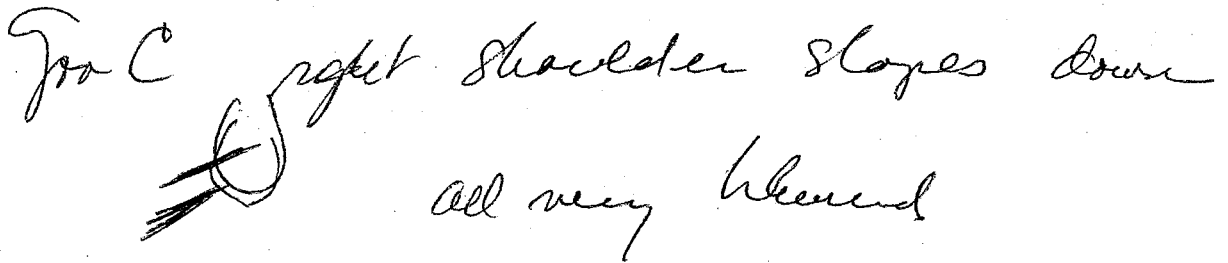 C right shoulder slopes down
all very blurred